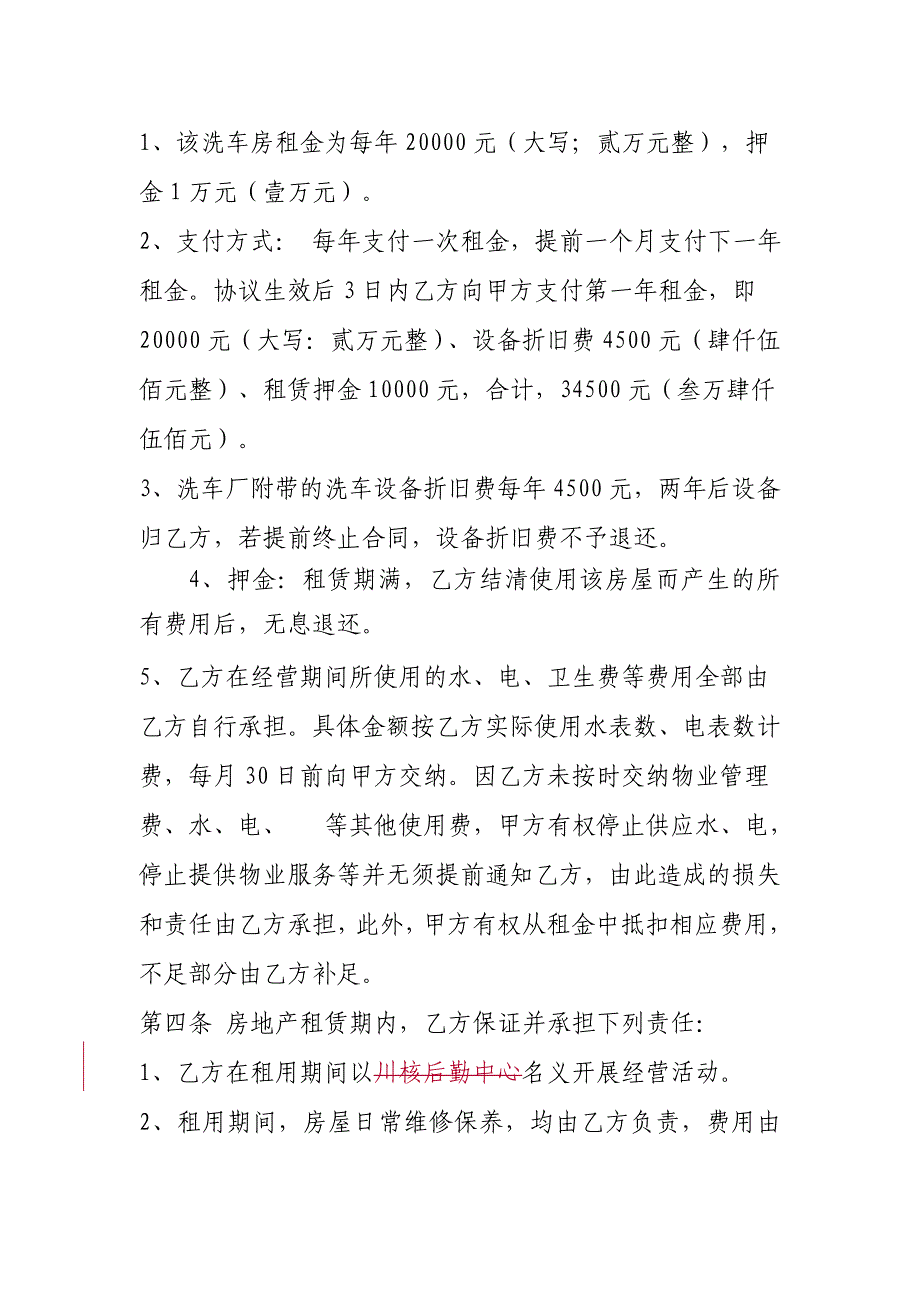 1、该洗车房租金为每年 20000 元（大写；贰万元整），押
金 1 万元（壹万元）。
2、支付方式： 每年支付一次租金，提前一个月支付下一年
租金。协议生效后 3 日内乙方向甲方支付第一年租金，即
20000 元（大写：贰万元整）、设备折旧费 4500 元（肆仟伍
佰元整）、租赁押金 10000 元，合计，34500 元（叁万肆仟
伍佰元）。
3、洗车厂附带的洗车设备折旧费每年 4500 元，两年后设备
归乙方，若提前终止合同，设备折旧费不予退还。
4、押金：租赁期满，乙方结清使用该房屋而产生的所
有费用后，无息退还。
5、乙方在经营期间所使用的水、电、卫生费等费用全部由
乙方自行承担。具体金额按乙方实际使用水表数、电表数计
费，每月 30 日前向甲方交纳。因乙方未按时交纳物业管理
费、水、电、 等其他使用费，甲方有权停止供应水、电，
停止提供物业服务等并无须提前通知乙方，由此造成的损失
和责任由乙方承担，此外，甲方有权从租金中抵扣相应费用，
不足部分由乙方补足。
第四条 房地产租赁期内，乙方保证并承担下列责任：
1、乙方在租用期间以川核后勤中心名义开展经营活动。
2、租用期间，房屋日常维修保养，均由乙方负责，费用由